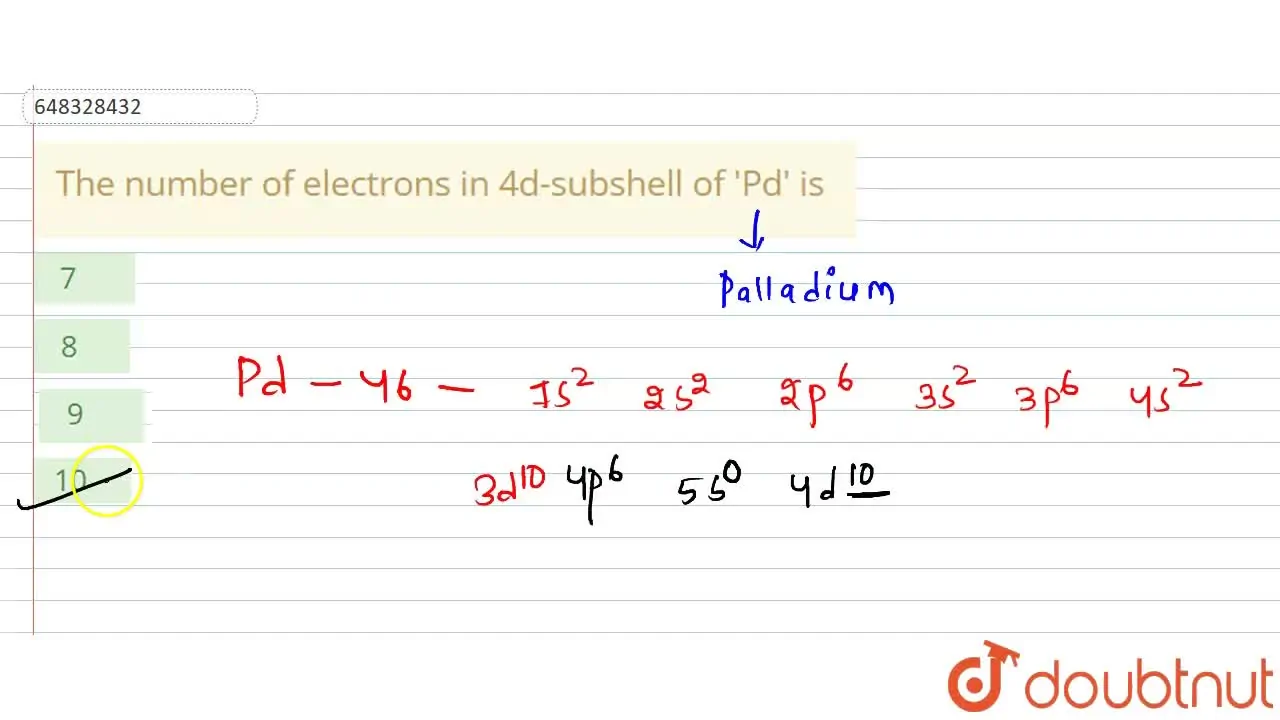 648328432
The number of electrons in 4d-subshell of 'Pd' is
Palladium
7
8
Pd - 46 - 1s² 2s² 2p⁶ 3s² 3p⁶ 4s²
9
10
3d¹⁰ 4p⁶ 5s⁰ 4d¹⁰
doubtnut